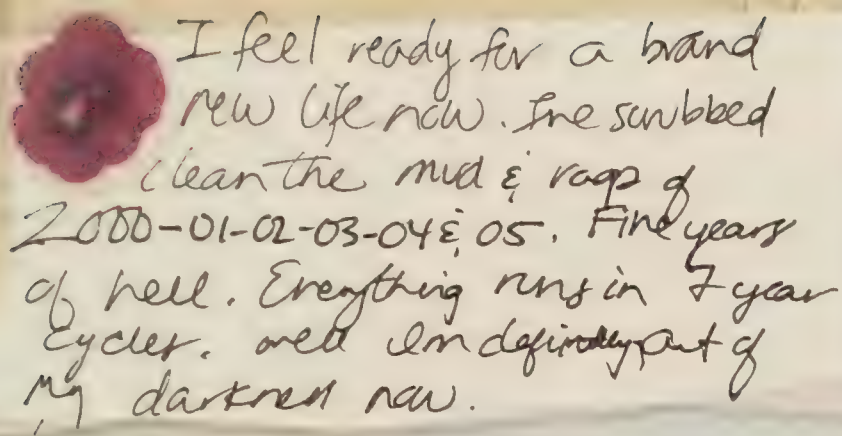 I feel ready for a brand
new life now. I've scrubbed
clean the mud & rags of
2000-01-02-03-04 & 05. Five years
of hell. Everything runs in 7 year
cycles. well Im definitely out of
my darkness now.